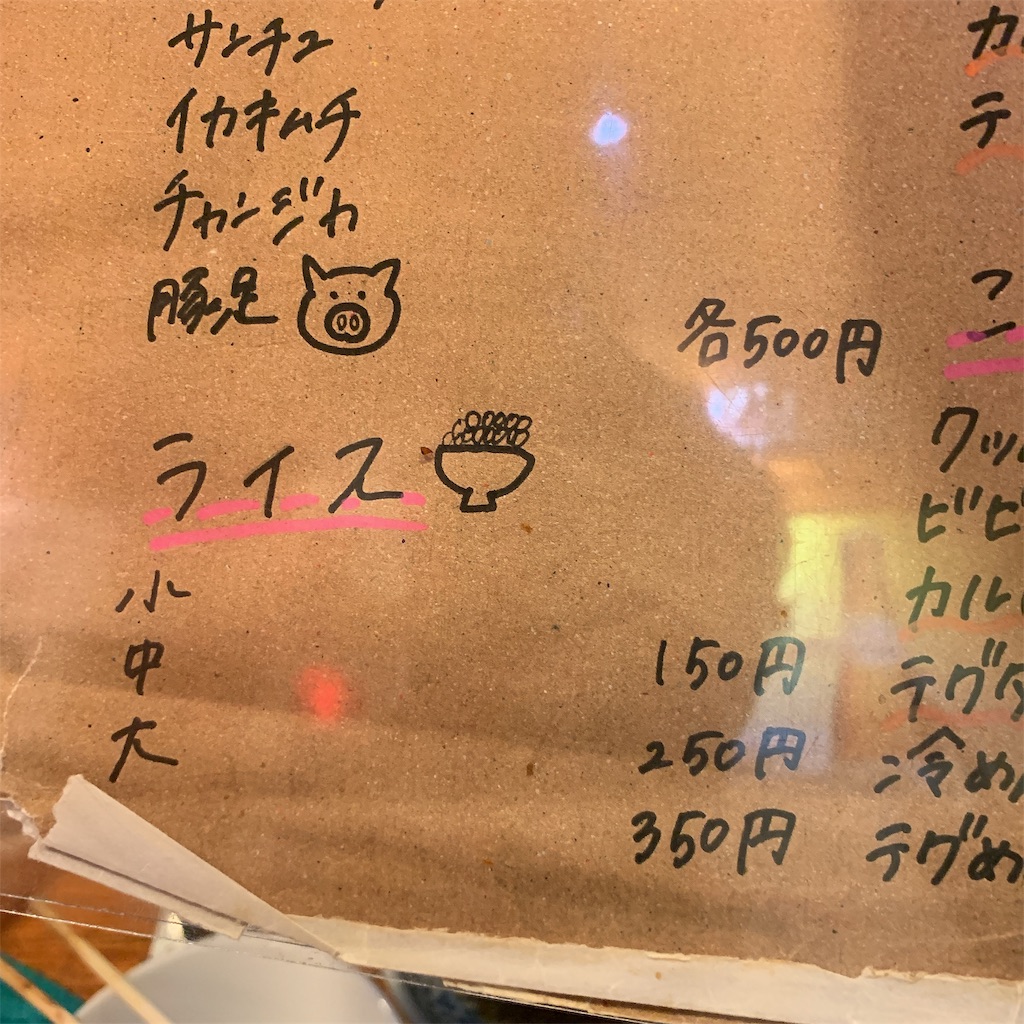 サンチュ
イカキムチ
チャンジャ
豚足
各500円
ライス
小 150円
中 250円
大 350円
カ
テ
ワッ
ビビ
カル
テグタ
冷め
テグめ